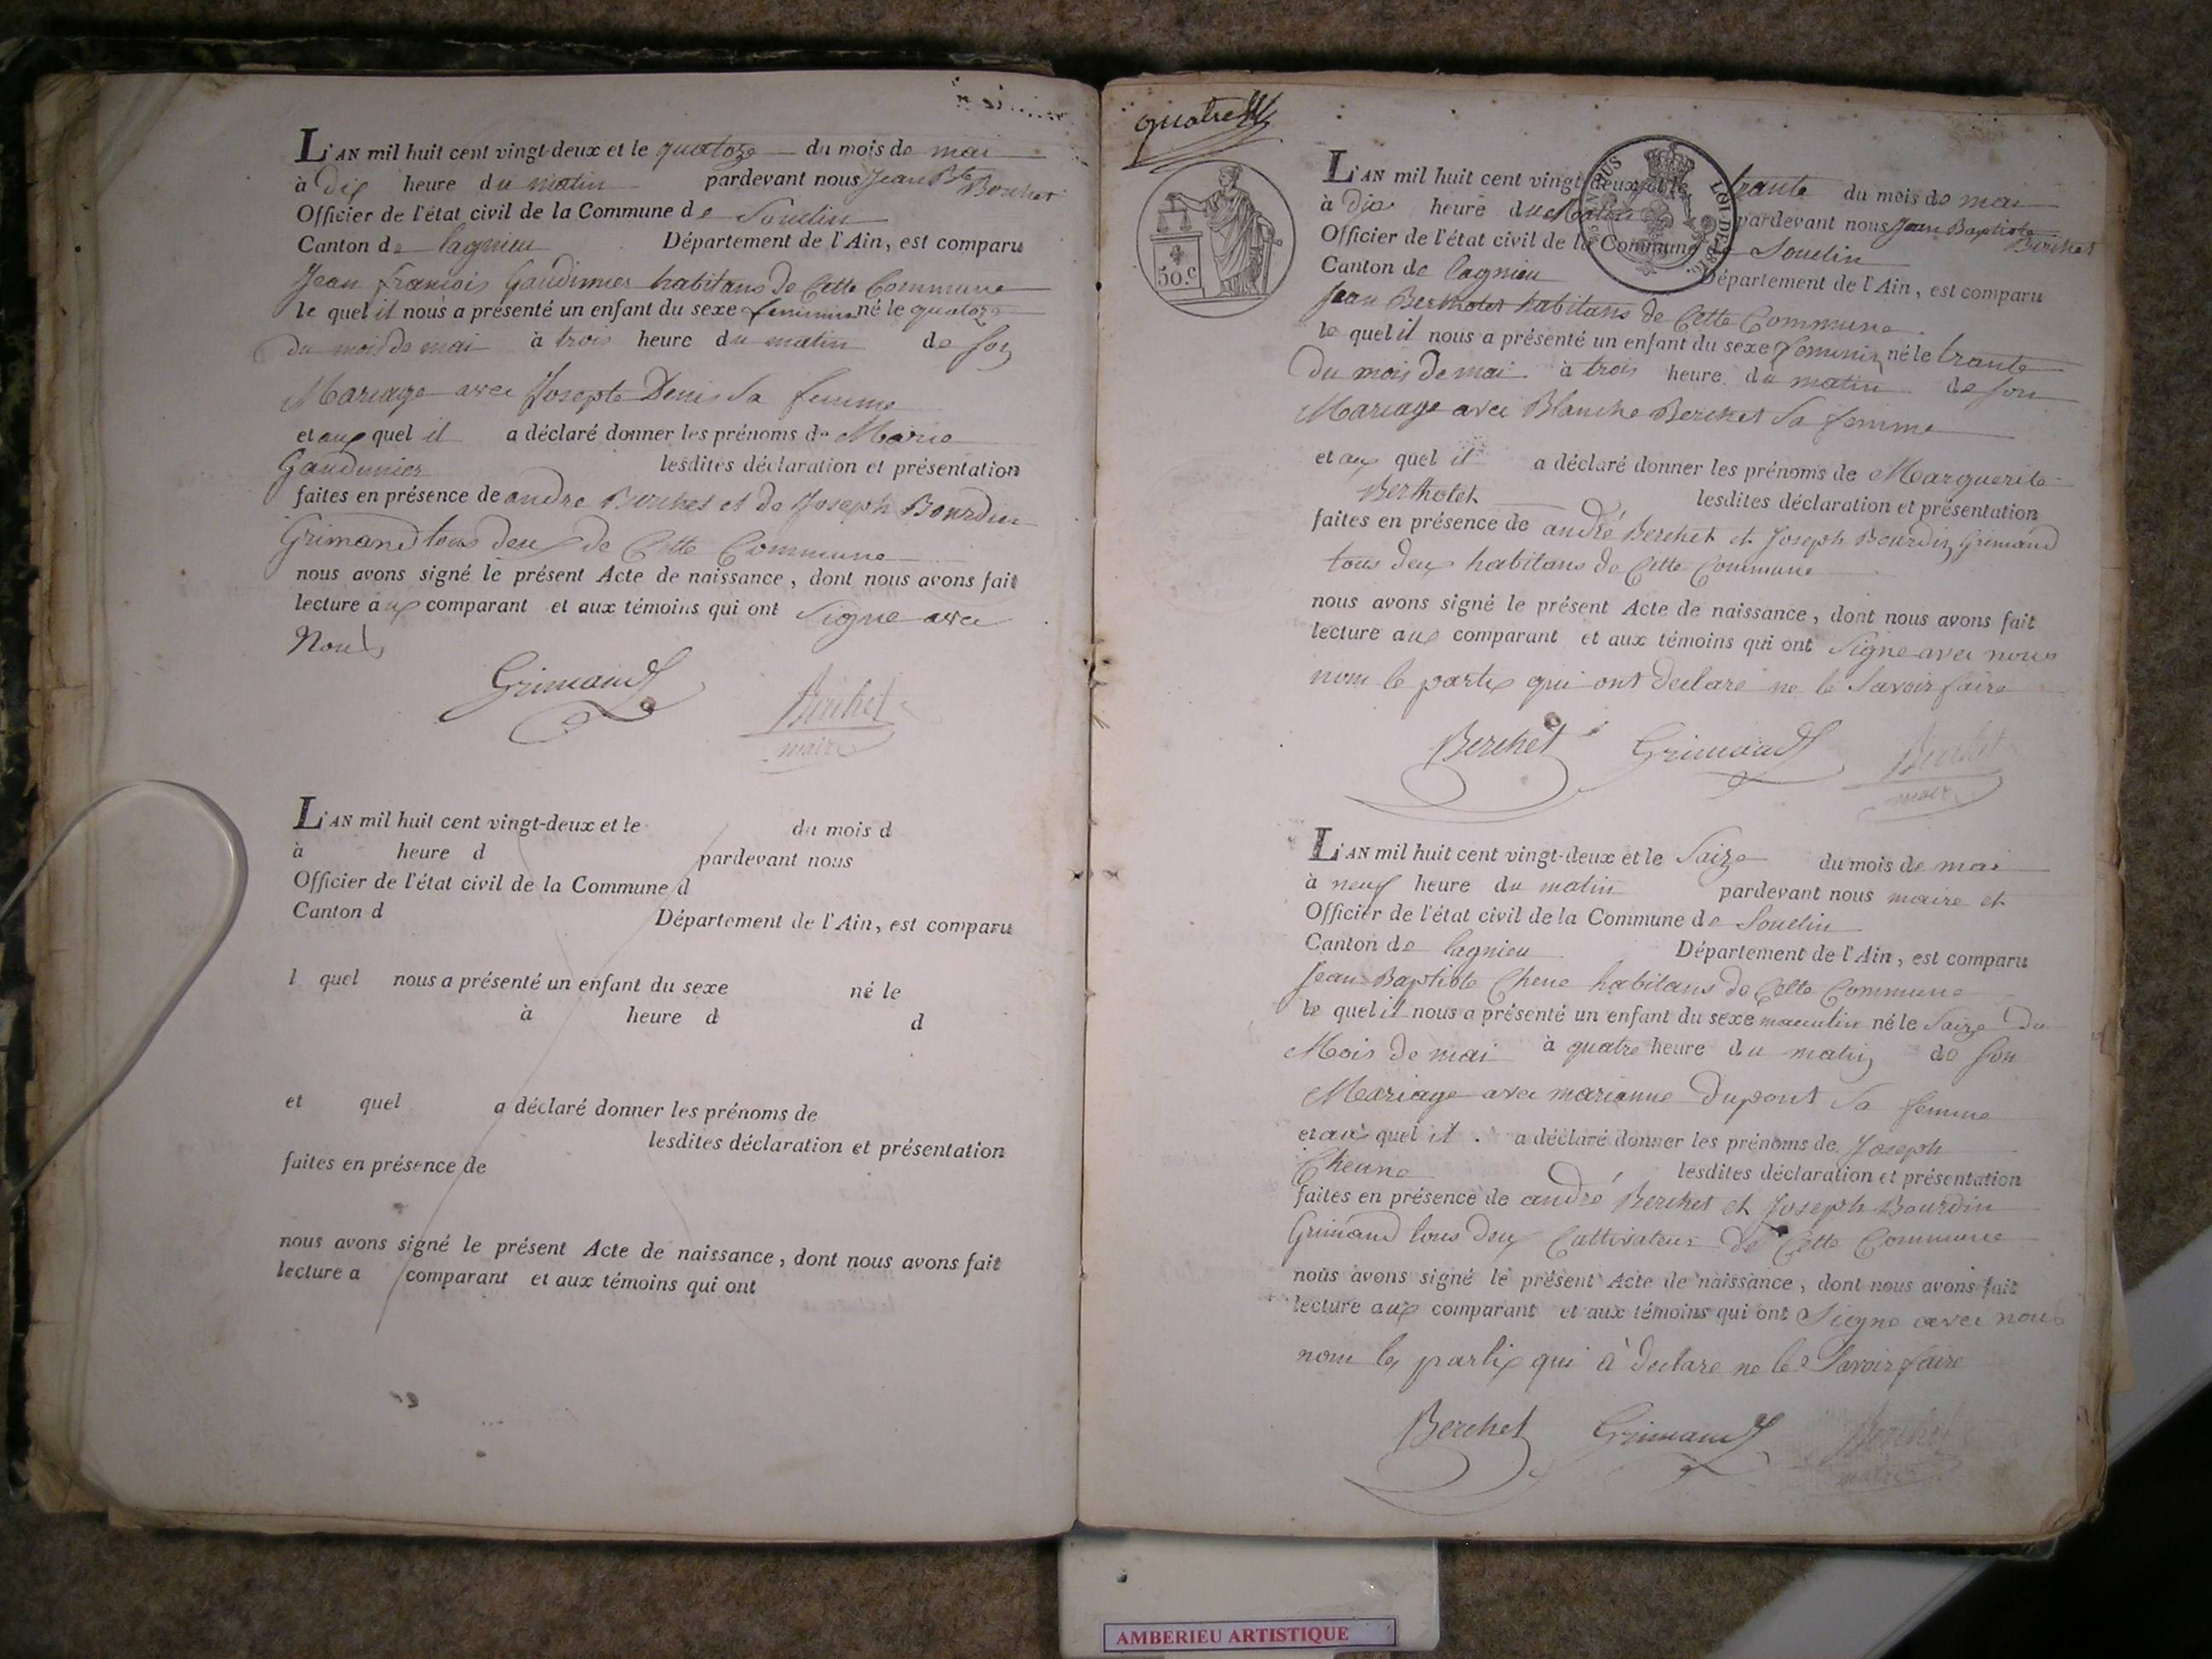 L'AN mil huit cent vingt-deux et le quatorze du mois de mai
à Dix heure du matin pardevant nous Jean Bte Berchet
Officier de l'état civil de la Commune de Souclin
Canton de lagnieu Département de l'Ain, est comparu
Jean François Gaudinier habitans De Cette Commune
le quel il nous a présenté un enfant du sexe feminin né le quatorze
du mois de mai à trois heure du matin de son
Mariage avec Josepte Denis Sa femme
et aux quel il a déclaré donner les prénoms de Marie
Gaudinier lesdites déclaration et présentation
faites en présence de andre Berchet et de Joseph Bourdin
Grimand tous deux de Cette Commune
nous avons signé le présent Acte de naissance, dont nous avons fait
lecture aux comparant et aux témoins qui ont Signe avec
Nous
Grimand Berchet
maire
L'AN mil huit cent vingt-deux et le du mois d
à heure d pardevant nous
Officier de l'état civil de la Commune d
Canton d Département de l'Ain, est comparu
l quel nous a présenté un enfant du sexe né le
à heure d d
et quel a déclaré donner les prénoms de
lesdites déclaration et présentation
faites en présence de
nous avons signé le présent Acte de naissance, dont nous avons fait
lecture a comparant et aux témoins qui ont
quatre
50.c
LOI DE
L'AN mil huit cent vingt-deux et le trante du mois de mai
à Dix heure du Matin pardevant nous Jean Baptiste Berchet
Officier de l'état civil de la Commune de Souclin
Canton de lagnieu Département de l'Ain, est comparu
Jean Berthotet habitans de Cette Commune
le quel il nous a présenté un enfant du sexe feminin né le trante
Du mois De mai à trois heure du matin de son
Mariage avec Blanche Berchet Sa femme
et aux quel il a déclaré donner les prénoms de Marguerite
Berthotet lesdites déclaration et présentation
faites en présence de andré Berchet et Joseph Bourdin Grimand
tous deux habitans de Cette Commune
nous avons signé le présent Acte de naissance, dont nous avons fait
lecture aux comparant et aux témoins qui ont Signe avec nous
nom le partix qui ont declaré ne le Savoir faire
Berchet Grimand Berchet
maire
L'AN mil huit cent vingt-deux et le Saize du mois de mai
à neuf heure du matin pardevant nous maire et
Officier de l'état civil de la Commune de Souclin
Canton de lagnieu Département de l'Ain, est comparu
Jean Baptiste Chene habitans de Cette Commune
le quel il nous a présenté un enfant du sexe masculin né le Saize Du
Mois de mai à quatre heure du matin de son
Mariage avec marianne Dupont Sa femme
et aux quel il a déclaré donner les prénoms de Joseph
Cheune lesdites déclaration et présentation
faites en présence de andré Berchet et Joseph Bourdin
Grimand tous deux Cultivateur de Cette Commune
nous avons signé le présent Acte de naissance, dont nous avons fait
lecture aux comparant et aux témoins qui ont Signe avec nous
nom les partix qui à declare ne le Savoir faire
Berchet Grimand Berchet
maire
AMBERIEU ARTISTIQUE